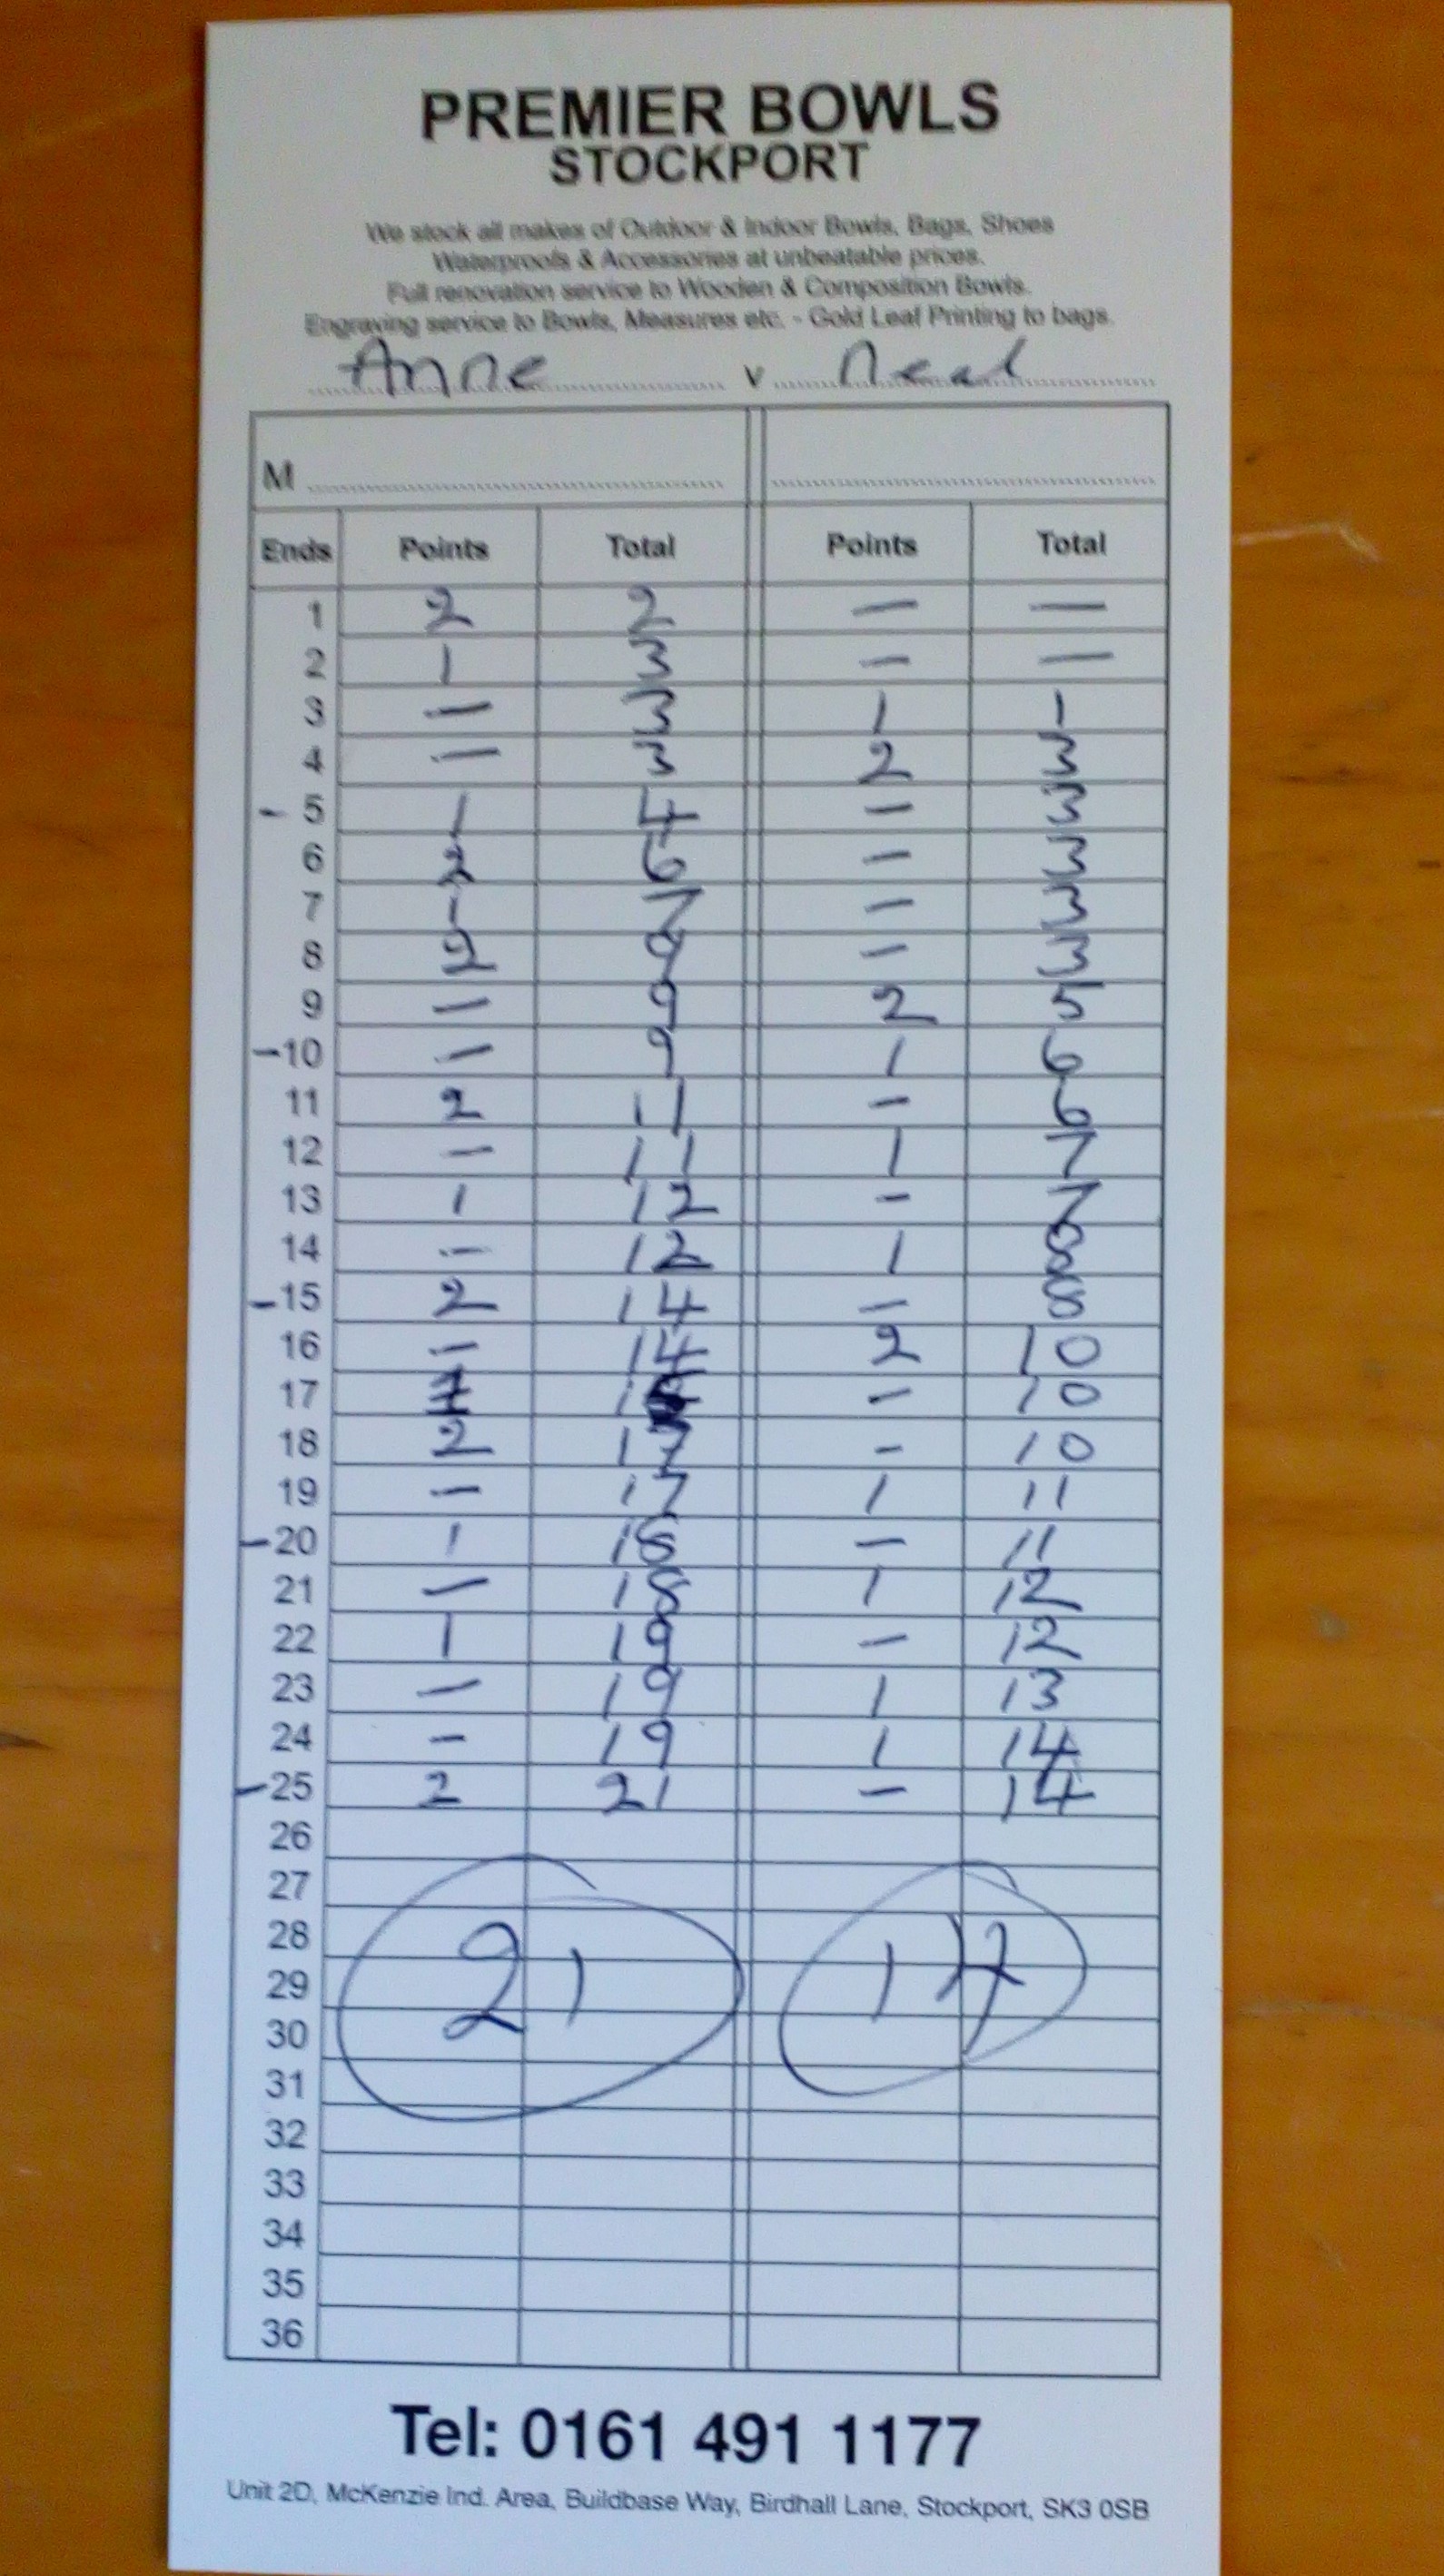 PREMIER BOWLS
STOCKPORT
We stock all makes of Outdoor & Indoor Bowls, Bags, Shoes
Waterproofs & Accessories at unbeatable prices.
Full renovation service to Wooden & Composition Bowls.
Engraving service to Bowls, Measures etc. - Gold Leaf Printing to bags.
Anne v Neal
M
Ends Points Total Points Total
1 2 2 — —
2 1 3 — —
3 — 3 1 1
4 — 3 2 3
- 5 1 4 — 3
6 2 6 — 3
7 1 7 — 3
8 2 9 — 3
9 — 9 2 5
-10 — 9 1 6
11 2 11 — 6
12 — 11 1 7
13 1 12 - 7
14 — 12 1 8
-15 2 14 — 8
16 — 14 2 10
17 — 10
18 2 17 - 10
19 — 17 1 11
-20 1 18 — 11
21 — 18 1 12
22 1 19 — 12
23 — 19 1 13
24 - 19 1 14
-25 2 21 — 14
26
27
28
29
30
31
32
33
34
35
36
21 14
Tel: 0161 491 1177
Unit 2D, McKenzie Ind. Area, Buildbase Way, Birdhall Lane, Stockport, SK3 0SB